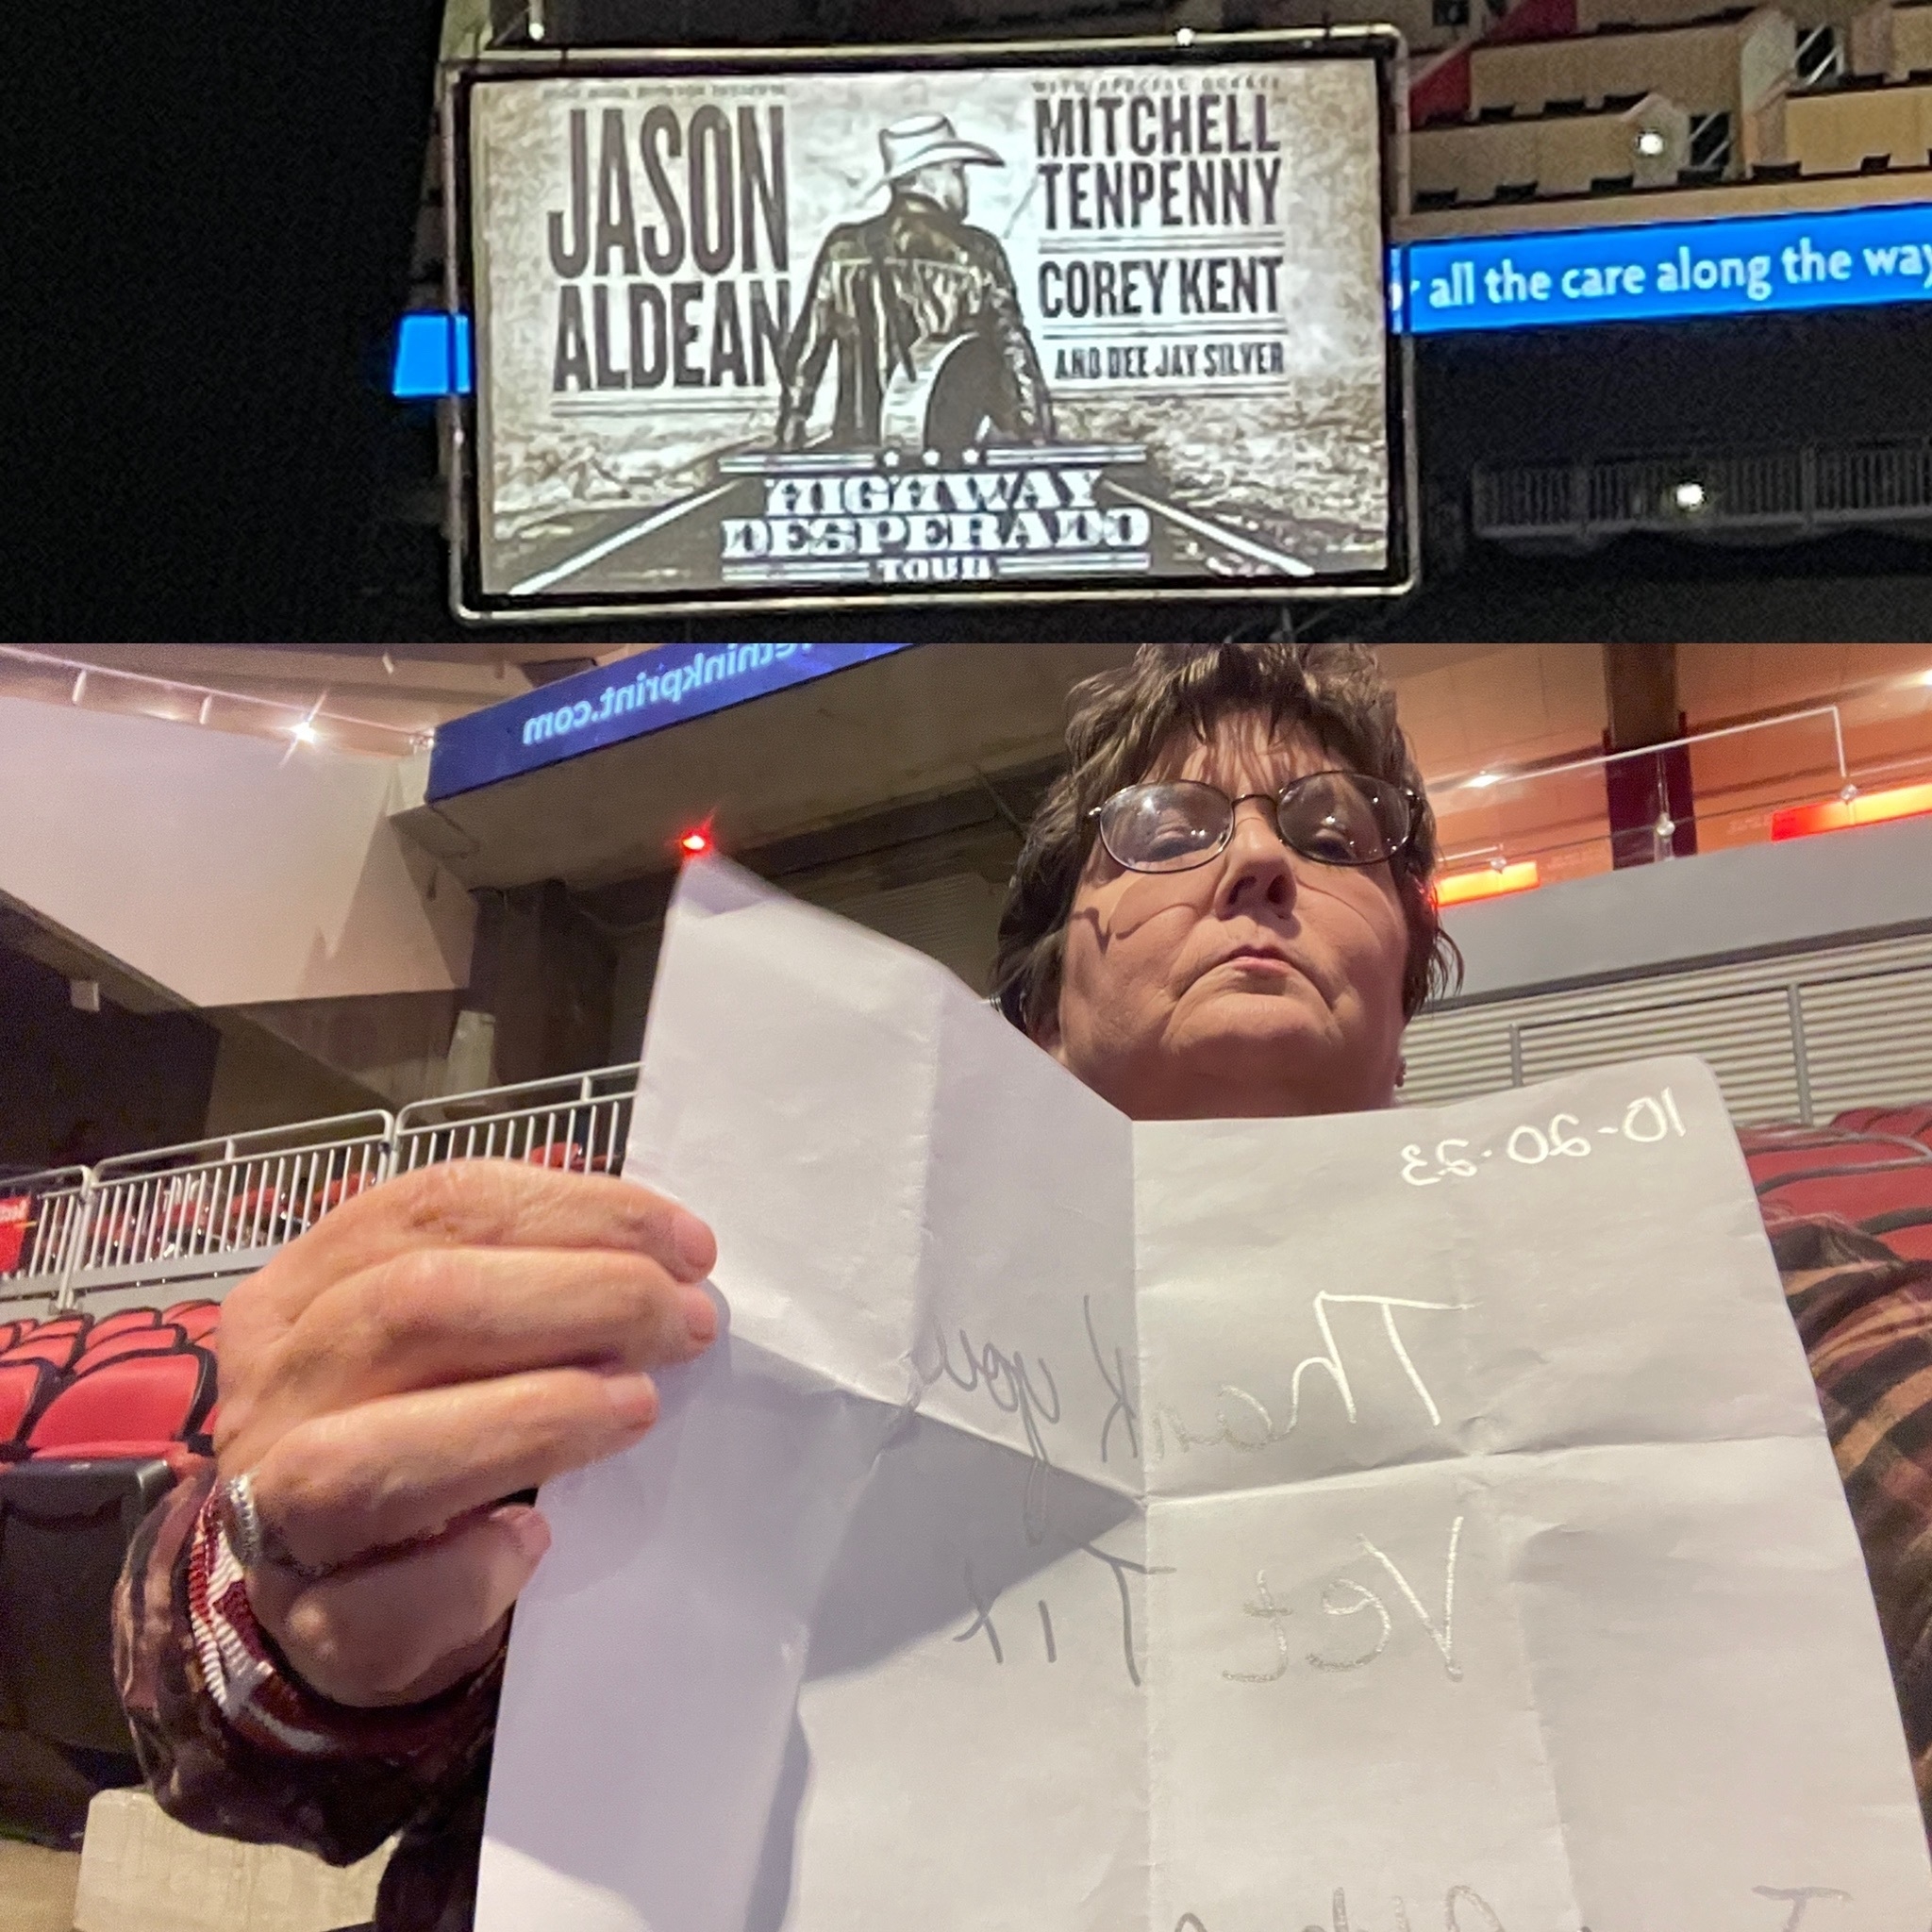 JASON
ALDEAN
WITH SPECIAL GUESTS
MITCHELL
TENPENNY
COREY KENT
AND DEE JAY SILVER
HIGHWAY
DESPERADO
TOUR
all the care along the way
ethinkprint.com
10-20-23
Thank you
Vet Tix